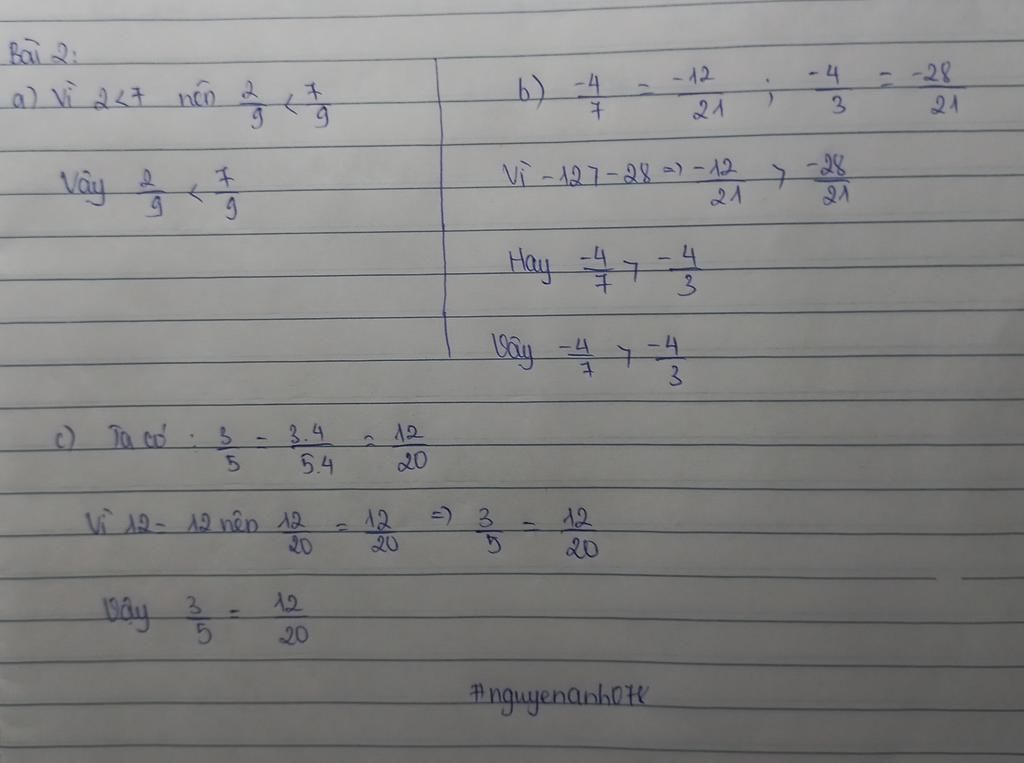 Bài 2:
a) Vì 2 < 7 nên 2/9 < 7/9
Vậy 2/9 < 7/9
b) -4/7 = -12/21 ; -4/3 = -28/21
Vì -12 > -28 => -12/21 > -28/21
Hay -4/7 > -4/3
Vậy -4/7 > -4/3
c) Ta có : 3/5 = 3.4/5.4 = 12/20
Vì 12 = 12 nên 12/20 = 12/20 => 3/5 = 12/20
Vậy 3/5 = 12/20